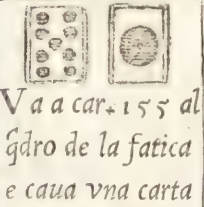 Va a car. 155 al
q̃dro de la fatica
e caua vna carta